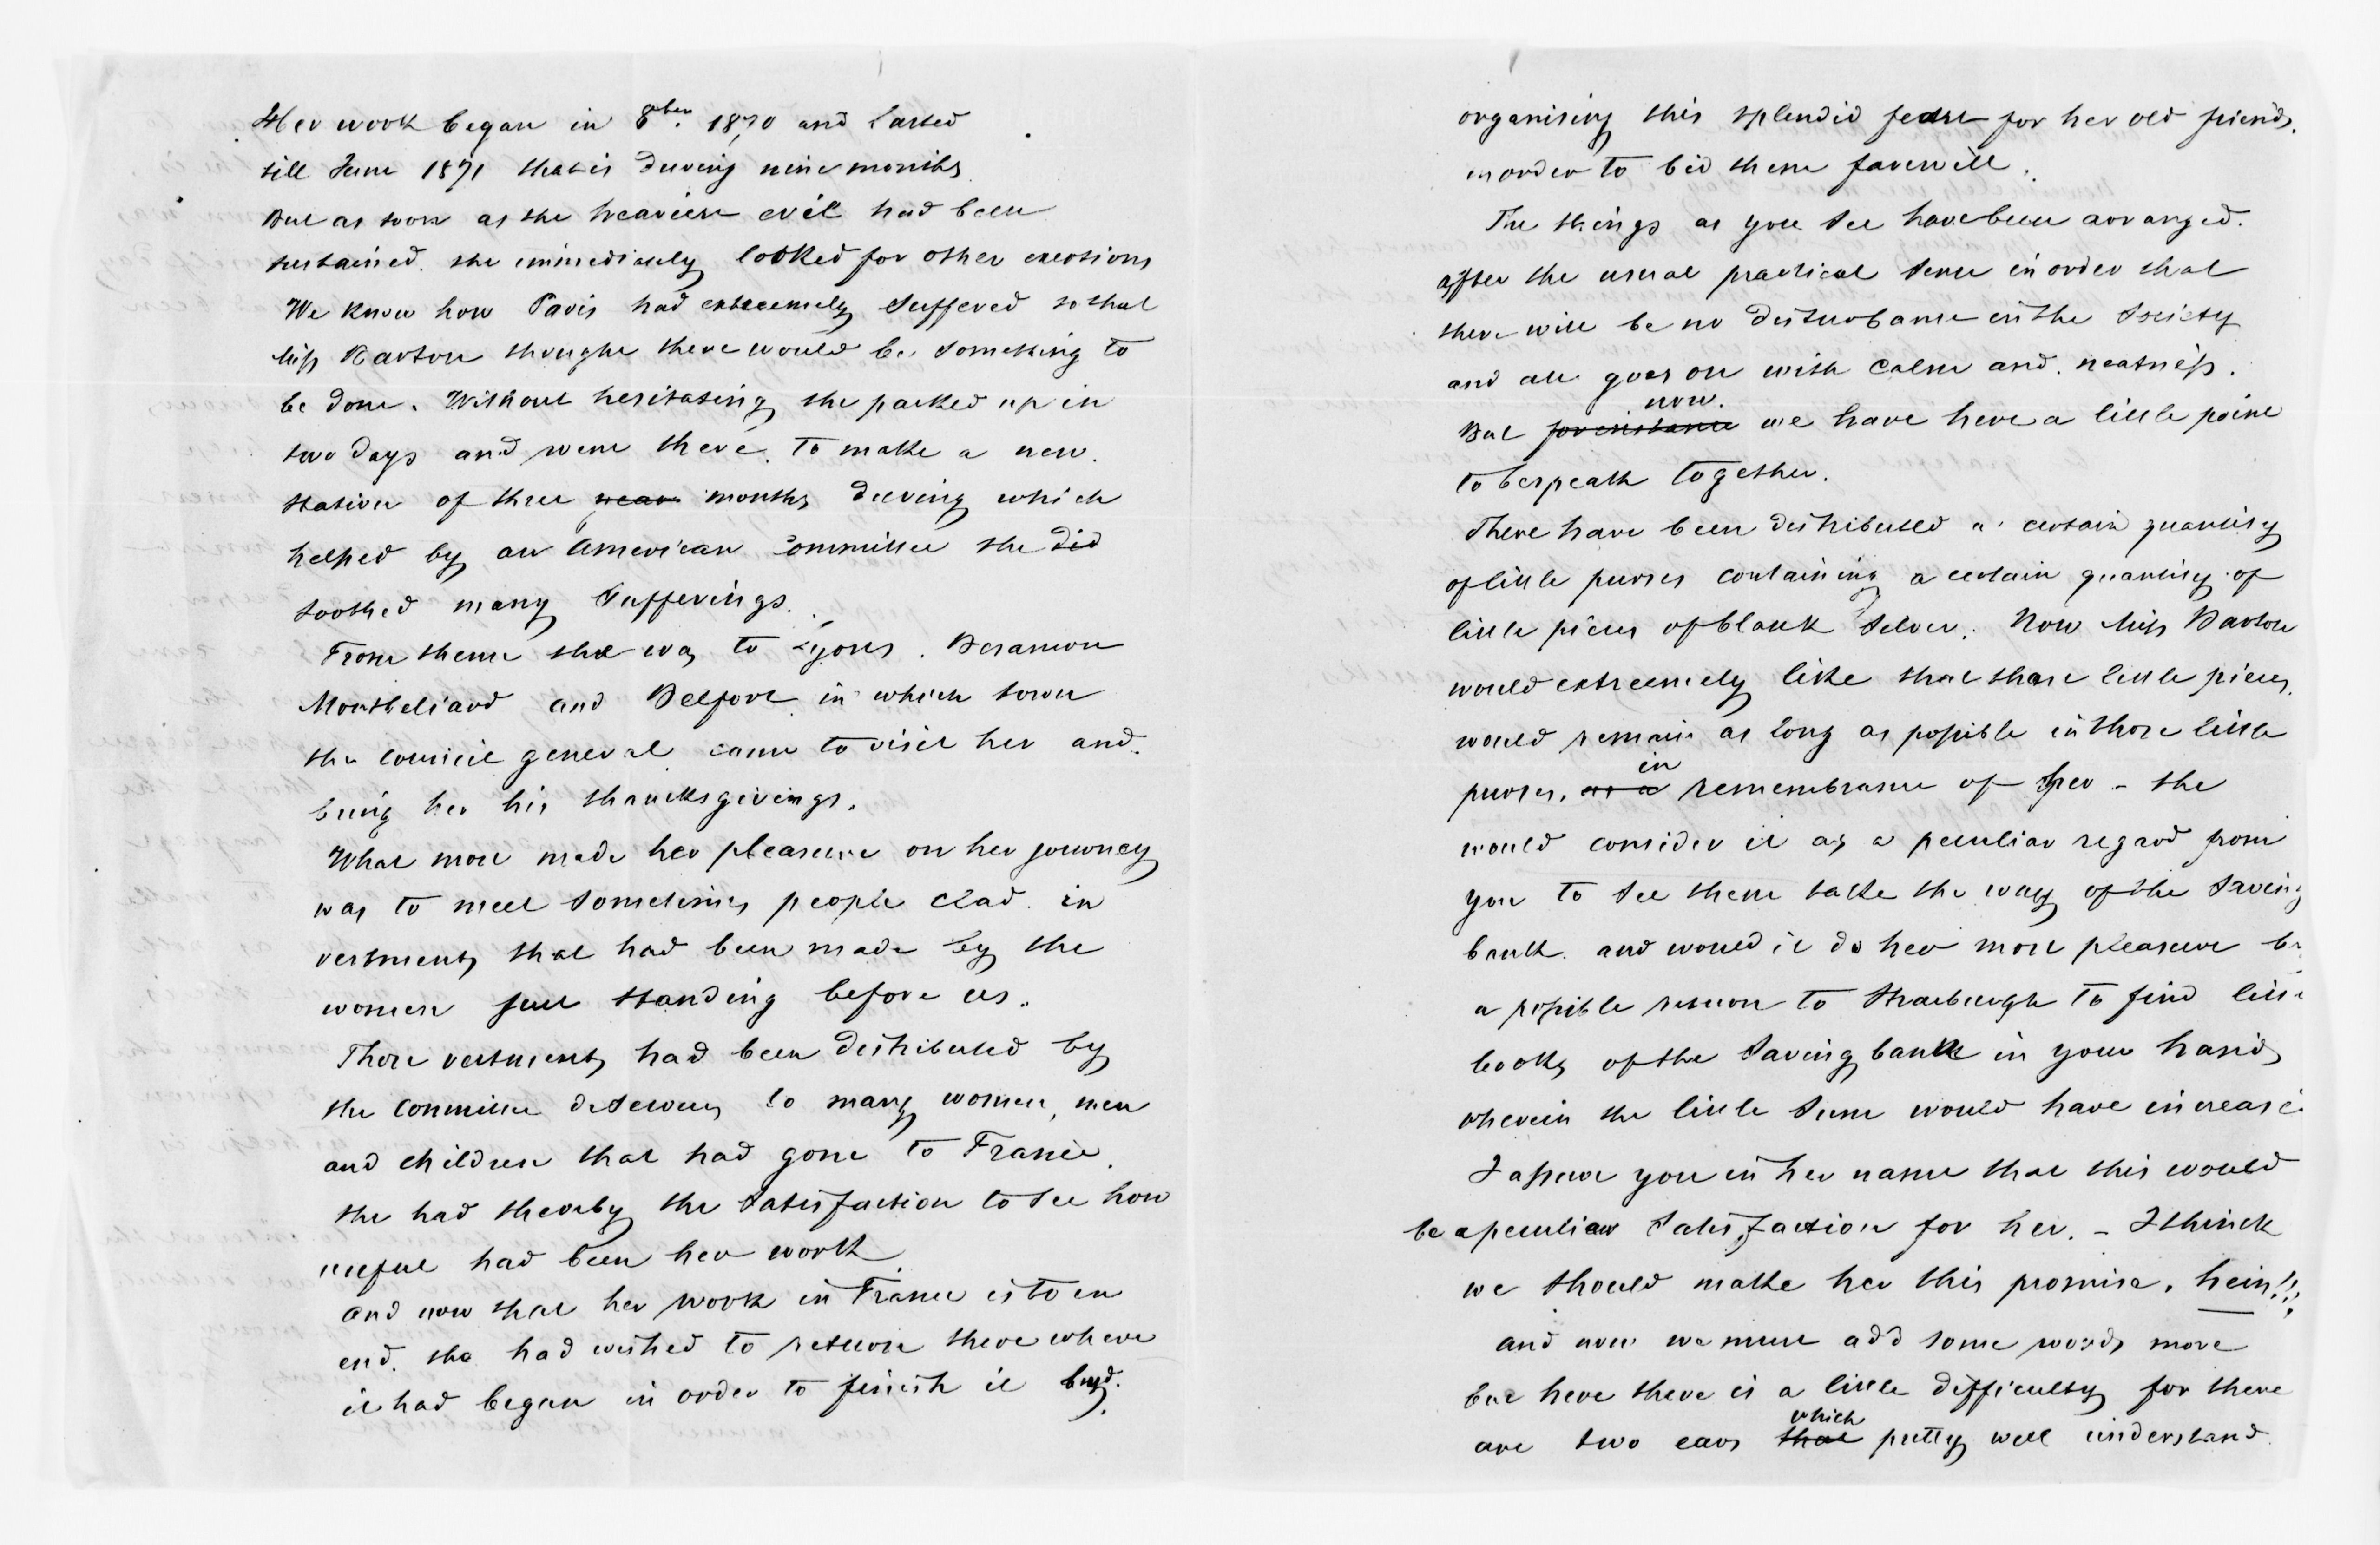 Her work began in 8ber. 1870 and lasted
till June 1871 that is during nine months
But as soon as the heaviest evil had been
sustained. she immediately looked for other exertions
We know how Paris had extreemely suffered so that
Miss Barton thought there would be something to
be done. Without hesitating, she packed up in
two days and went there. to make a new.
station of three year months, during which
helped by an American Committee she did
soothed many sufferings.
From thence she was to Lyons. Besancon
Montbeliard and Belfort in which town
the council general came to visit her and.
bring her his thancksgivings.
What most made her pleasure on her journey
was to meet sometimes people clad. in
vestments that had been made by the
women just standing before us.
Those vestments had been distributed by
the Committee de Secours to many women, men
and children that had gone to France.
she had thereby the satisfaction to see how
useful had been her work.
and now that her work in France is to en
end. she had wished to return there where
it had began in order to finish it
organising this splendid feast for her old friends.
in order to bid them farewell.
The things as you see have been arranged.
after the usual practical sense in order that
there will be no disturbance in the Society
and all goes on with calm and. neatness.
now.
But for instance we have here a little point
to bespeak together.
There have been distributed a certain quantity
of little purses containing a certain quantity of
little pieces of blank silver. Now Miss Barton
would extreemely like that those little pieces.
would remain as long as possible in those little
in
purses, as a remembrance of her - she
would consider it as a peculiar regard from
you to see them take the way of the Saving
bank. and would it do her most pleasure by
a possible return to Strasburgh to find little
books of the Saving bank in your hands
wherein the little sum would have increase
I assure you in her name that this would
be a peculiar satisfaction for her. - I thinck
we should make her this promise. hein!!!
and now we must add some words more
but here there is a little difficulty for there
which
are two ears that pretty well understand